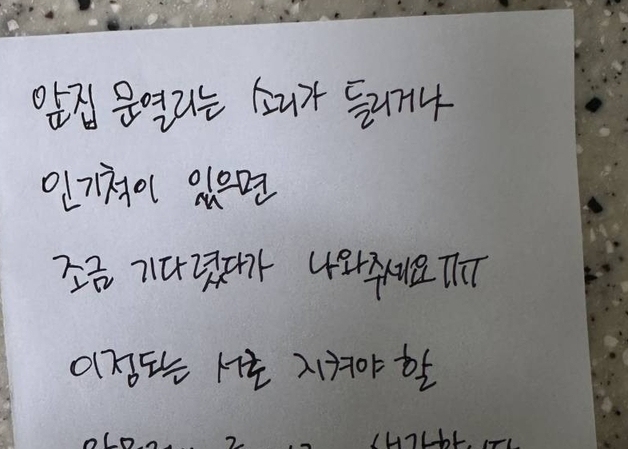 앞집 문열리는 소리가 들리거나
인기척이 있으면
조금 기다렸다가 나와주세요ㅠㅠ
이정도는 서로 지켜야 할
생각합니다